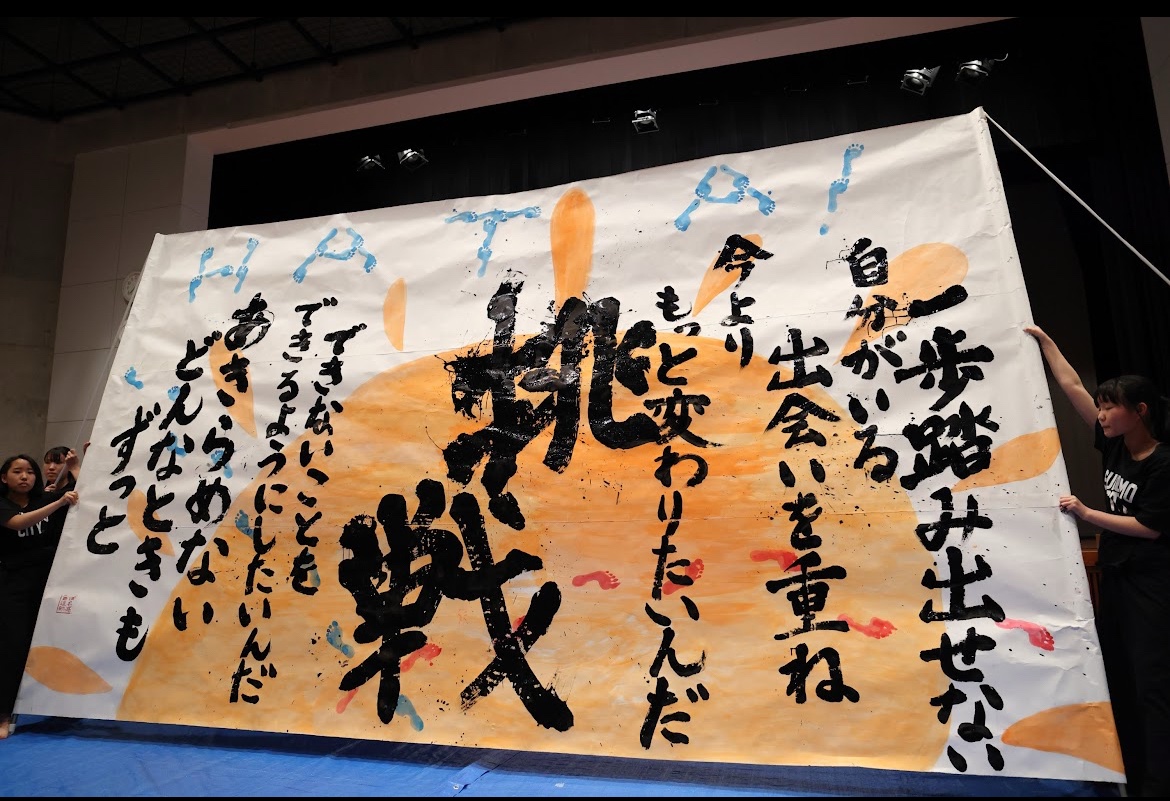 HATAI
一歩踏み出せない
自分がいる
出会いを重ね
今より
もっと変わりたいんだ
挑戦
できないことを
できるようにしたいんだ
あきらめない
どんなときも
ずっと